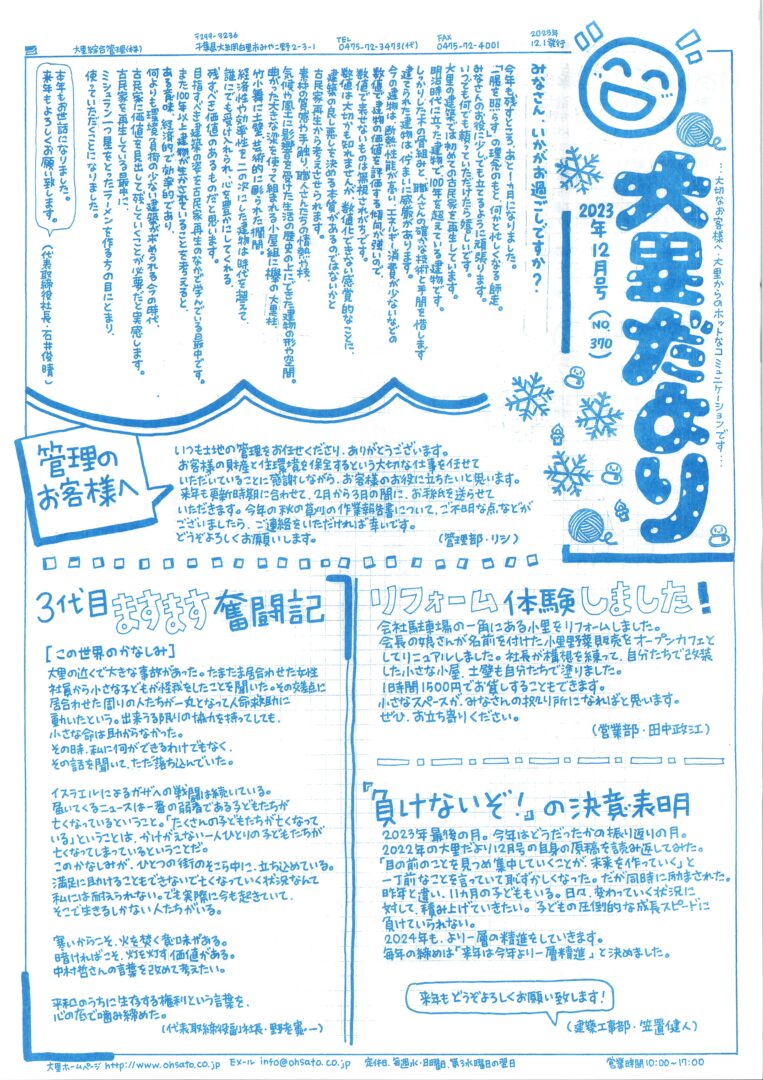 大里綜合管理(株)
〒299-3236
千葉県大網白里市みやこ野2-3-1
TEL
0475-72-3473(代)
FAX
0475-72-4001
2023年
12.1発行
…大切なお客様へ・大里からのホットなコミュニケーションです…
大里だより
2023年12月号(NO.370)
みなさん、いかがお過ごしですか?
今年も残すところ、あと1ヵ月になりました。
「一隅を照らす」の理念のもと、何かと忙しくなる師走。
みなさんのお役に少しでも立てるように頑張ります。
いつでも何でも頼っていただけたら嬉しいです。
大里の建築では初めての古民家を再生しています。
明治時代に立った建物で、100年を超えている建物です。
しっかりした木の骨組みと、職人さんの確かな技術と手間を惜しまず
建てられた建物は、今まさに感服があります。
今の建物は、断熱性能が高い、エネルギー消費が少ないなどの
数値で建物の価値を評価する傾向が強いので、
数値で表せないものは無視されがちです。
数値は大切かも知れませんが、数値化できない感覚的なことに、
建築の良し悪しを決める本質があるのではないかと
古民家再生から考えさせられます。
素材の質感や手触り、職人さんたちの情熱や技、
気候や風土に影響を受けた生活の歴史の上にできた建物の形や空間。
曲がった大きな梁を使って組まれる小屋組に欅の大黒柱、
竹小舞に土壁、芸術的に彫られた欄間。
経済性や効率性を二の次にした建物は時代を超えて、
誰にでも受け入れられ、心を豊かにしてくれる、
残すべき価値のあるものだと思います。
目指すべき建築の姿を古民家再生のなかで学んでいる最中です。
また100年以上建物が生かされていることを考えると、
ある意味、経済的で効率的であり、
何よりも環境負荷の少ない建築が求められる今の時代、
古民家に価値を見出して残していくことが必要だと実感します。
古民家を再生している最中に、
ミシュラン一つ星をとったラーメンを作る方の目にとまり、
使っていただくことになりました。
本年もお世話になりました。
来年もよろしくお願い致します。
(代表取締役社長・石井俊晴)
管理の
お客様へ
いつも土地の管理をお任せくださり、ありがとうございます。
お客様の財産と住環境を保全するという大切な仕事を任せて
いただいていることに感謝しながら、お客様のお役に立ちたいと思います。
来年も更新時期に合わせて、2月から3月の間に、お手紙を送らせて
いただきます。今年の秋の草刈の作業報告書について、ご不明な点などが
ございましたら、ご連絡をいただければ幸いです。
どうぞよろしくお願いします。
(管理部・リシ)
3代目ますます奮闘記
[この世界のかなしみ]
大里の近くで大きな事故があった。たまたま居合わせた女性
社員から小さな子どもが怪我をしたことを聞いた。その交差点に
居合わせた周りの人たちが一丸となって人命救助に
動いたという。出来うる限りの協力を持ってしても、
小さな命は助からなかった。
その時、私に何ができるわけでもなく、
その話を聞いて、ただただ落ち込んでいた。
イスラエルによるガザへの戦闘は続いている。
届いてくるニュースは一番の弱者である子どもたちが
亡くなっているということ。「たくさんの子どもたちが亡くなって
いる」ということは、かけがえない一人ひとりの子どもたちが
亡くなってしまっているということだ。
このかなしみが、ひとつの街のそこら中に、立ち込めている。
満足に助けることもできないで亡くなっていく状況なんて
私には耐えられない。でも実際に今も起きていて、
そこで生きるしかない人たちがいる。
寒いからこそ、火を焚く意味がある。
暗ければこそ、灯を灯す価値がある。
中村哲さんの言葉を改めて考えたい。
平和のうちに生存する権利という言葉を、
心の底で噛み締めた。
(代表取締役副社長・野老憲一)
リフォーム体験しました!
会社駐車場の一角にある小里をリフォームしました。
会長の娘さんが名前を付けた小里野菜即売をオープンカフェと
してリニューアルしました。社長が構想を練って、自分たちで改装
した小さな小屋、土壁も自分たちで塗りました。
1日時間1500円でお貸しすることもできます。
小さなスペースが、みなさんの拠り所になればと思います。
ぜひ、お立ち寄りください。
(営業部・田中政江)
『負けないぞ!』の決意表明
2023年最後の月。今年はどうだったかの振り返りの月。
2022年の大里だより12月号の自身の原稿を読み返してみた。
「目の前のことを見つめ集中していくことが、未来を作っていく」と
一丁前なことを言っていて恥ずかしくなった。だが同時に励まされた。
昨年と違い、11ヵ月の子どももいる。日々、変わっていく状況に
対して、積み上げていきたい。子どもの圧倒的な成長スピードに
負けていられない。
2024年も、より一層の精進をしていきます。
毎年の締めは「来年は今年より一層精進」と決めました。
来年もどうぞよろしくお願い致します!
(建築工事部・笠置健人)
大里ホームページ http://www.ohsato.co.jp
Eメール info@ohsato.co.jp
定休日、毎週水・日曜日、第3水曜日の翌日
営業時間10:00〜17:00